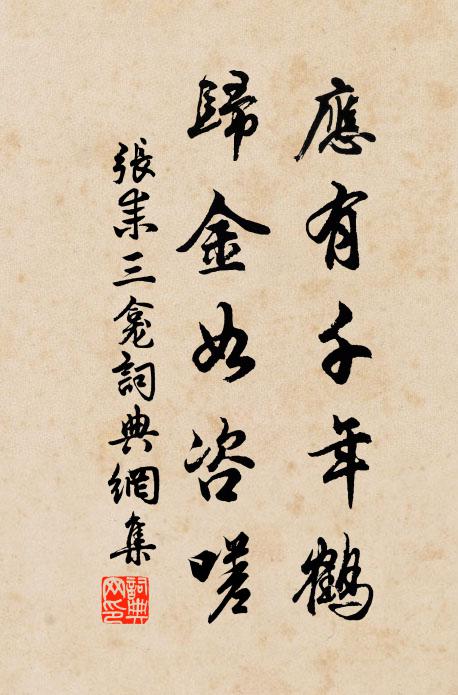 應有千年鶴
歸金如咨嗟
張耒三龛詞典網集
詞典
网印